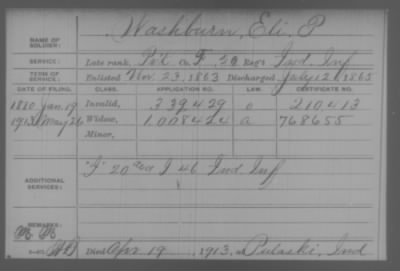 Washburn, Eli P
NAME OF SOLDIER:
SERVICE: Late rank, Pvt Co. F, 20 Reg't Ind. Inf
TERM OF SERVICE: Enlisted Nov. 23, 1863 Discharged July 12, 1865
DATE OF FILING. CLASS. APPLICATION NO. LAW. CERTIFICATE NO.
1880 Jan. 19 Invalid, 339429 210413
1913 May 26 Widow, 1008424 a 768655
Minor,
"F" 20 and I 46 Ind Inf
ADDITIONAL SERVICES:
REMARKS:
Died Apr 19, 1913, at Pulaski, Ind